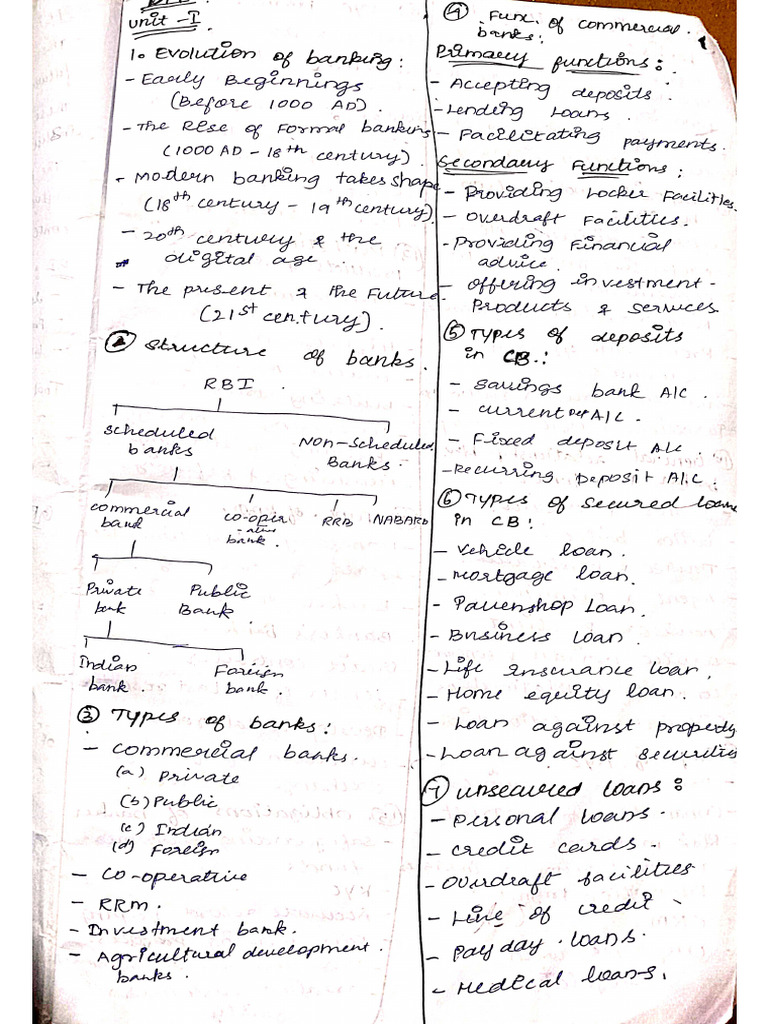 unit - I
1. Evolution of banking:
- Early Beginnings
(Before 1000 AD).
- The Rise of Formal banking
(1000 AD - 18th century).
- Modern banking takes shape
(18th century - 19th century)
- 20th century & the
digital age.
- The present & the Future.
(21st century).
② Structure of banks.
RBI.
Scheduled banks
Non-Scheduled Banks.
commercial bank
co-oper-ative bank.
RRB
NABARD
Private bank
Public Bank
Indian bank.
Foreign bank.
③ Types of banks:
- Commercial banks.
(a) Private
(b) Public
(c) Indian
(d) Foreign
- Co-operative
- RRM.
- Investment bank.
- Agricultural development
banks.
④ Func. of commercial
banks:
Primary functions:
- Accepting deposits.
- Lending Loans.
- Facilitating payments.
Secondary Functions:
- Providing Locker Facilities.
- Overdraft Facilities.
- Providing Financial
advice.
- Offering investment -
Products & services
⑤ Types of deposits
in CB.:
- Savings bank A/C.
- Current A/C.
- Fixed deposit A/C
- Recurring Deposit A/C.
⑥ Types of secured loans
in CB:
- Vehicle loan.
- Mortgage loan.
- Pawenshop Loan.
- Business loan.
- Life Insurance loan.
- Home equity loan.
- Loan against property
- Loan against securities
⑦ unsecured loans:
- Personal loans.
- Credit cards.
- Overdraft facilities
- Line of credit
- Pay day loans.
- Medical loans.